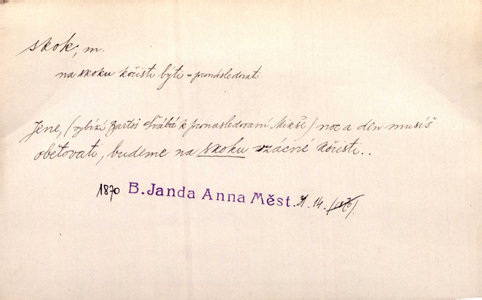 skok, m.
na skoku kořisti býti = pronásledovat
Jene, (vybízí Bartoš Švábá k pronásledování Mikše) noc a den musíš
obětovati, budeme na skoku vzácné kořisti..
1870 B. Janda Anna Měst. 14.